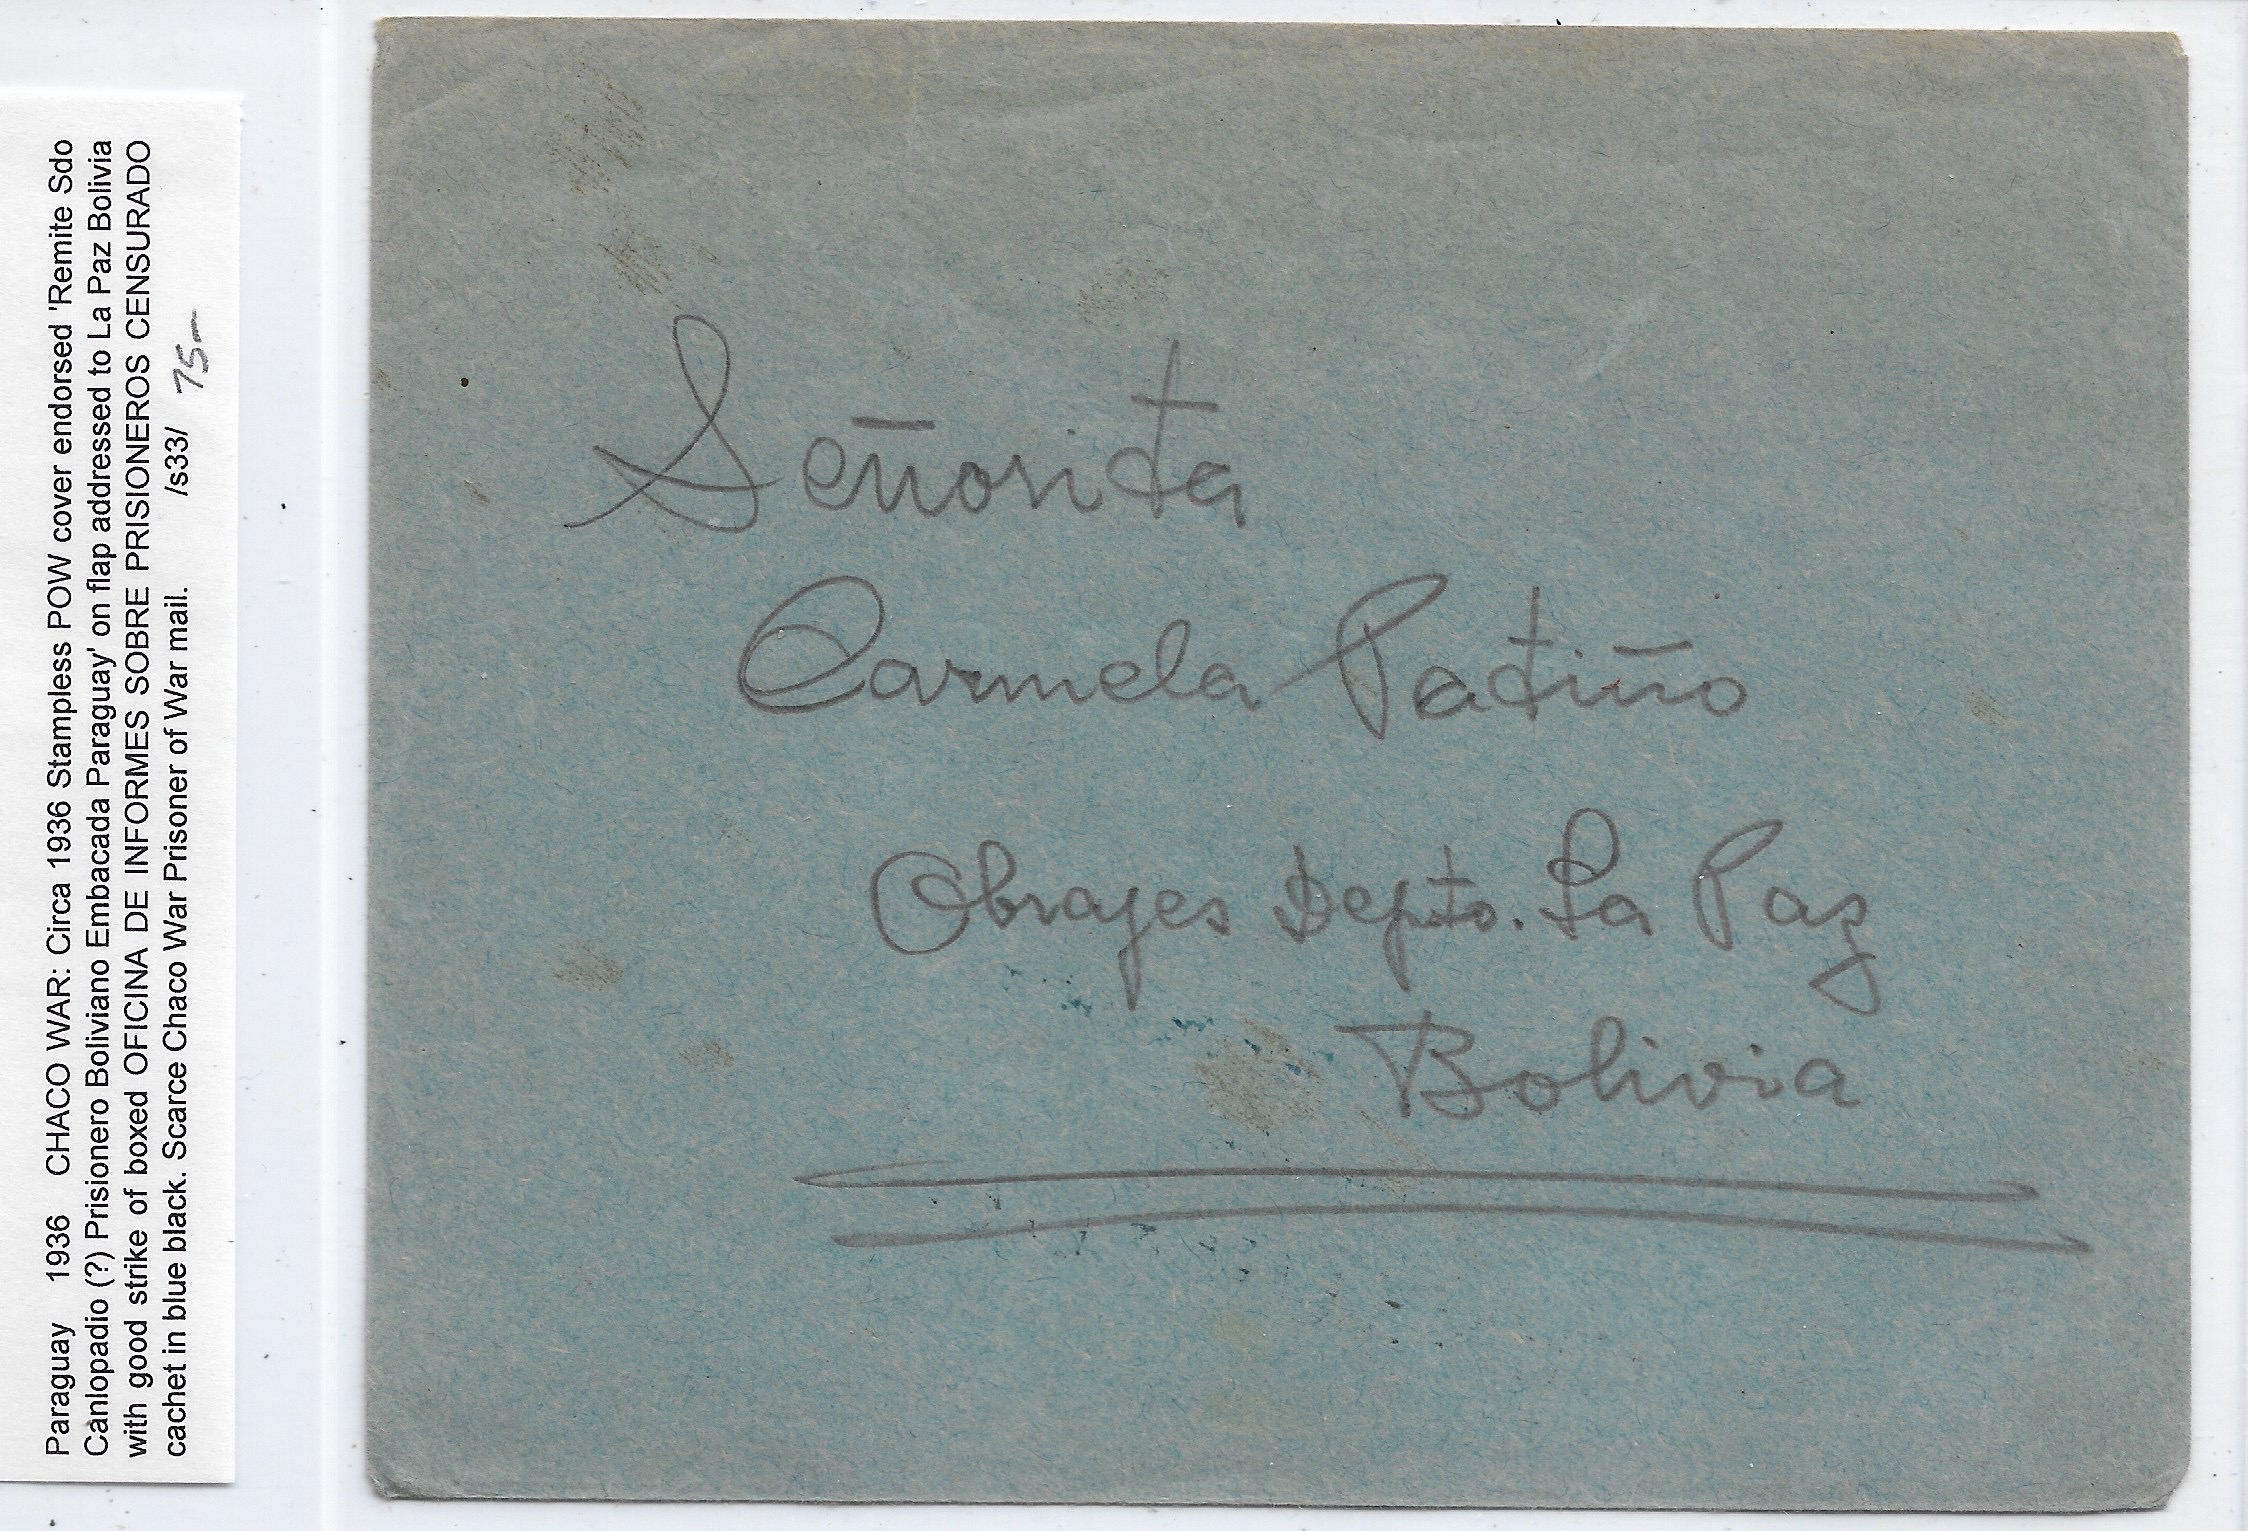 Paraguay 1936 CHACO WAR: Circa 1936 Stampless POW cover endorsed 'Remite Sdo
Canlopadio (?) Prisionero Boliviano Embacada Paraguay' on flap addressed to La Paz Bolivia
with good strike of boxed OFICINA DE INFORMES SOBRE PRISIONEROS CENSURADO
cachet in blue black. Scarce Chaco War Prisoner of War mail. /s33/ 75-
Señorita
Carmela Patiño
Obrajes Depto. La Paz
Bolivia